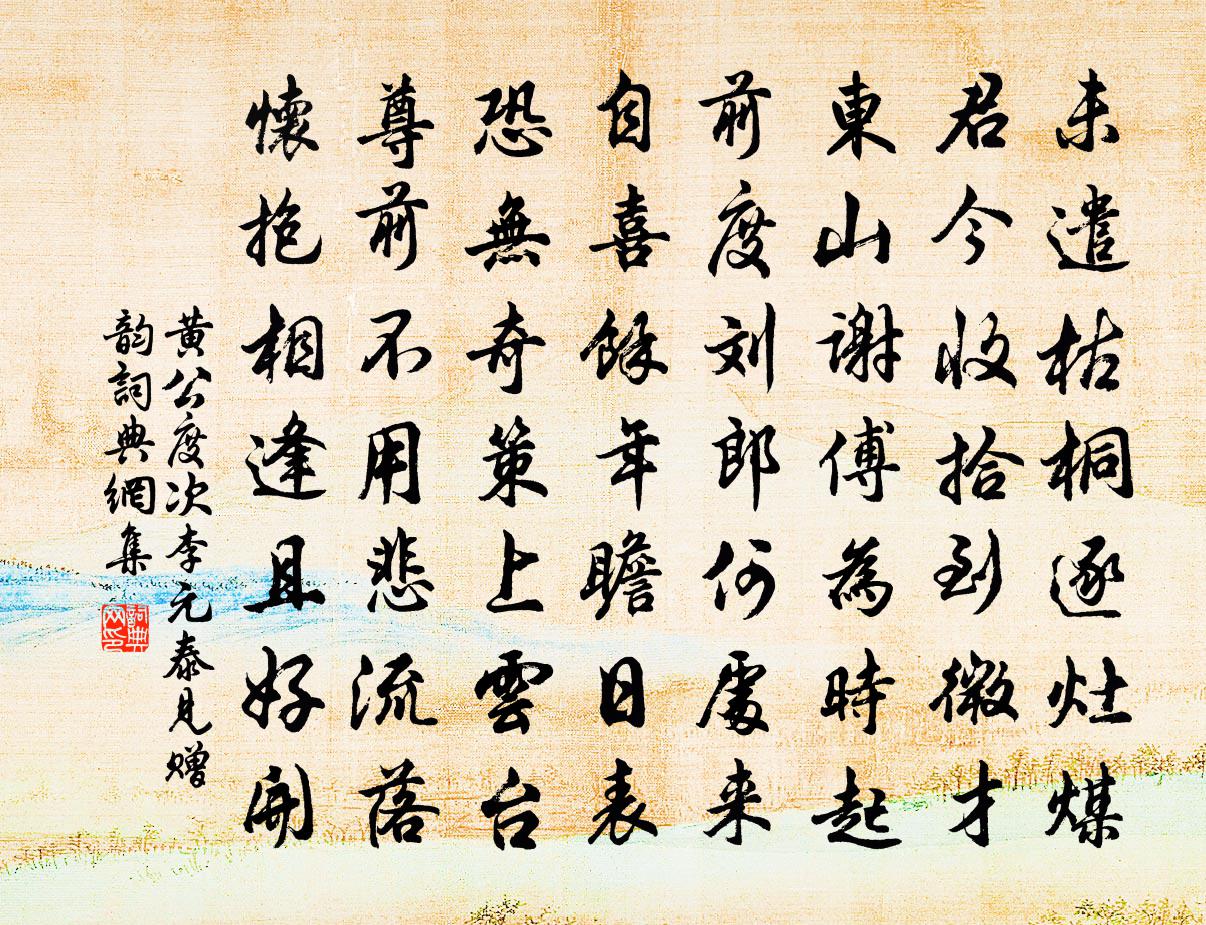 未遣枯桐逐灶煤
君今收拾到微才
東山謝傅為時起
前度刘郎何處来
自喜餘年瞻日表
恐無奇策上雲台
尊前不用悲流落
懷抱相逢且好開
黄公度次李元泰見赠
韵詞典網集
詞典
网印